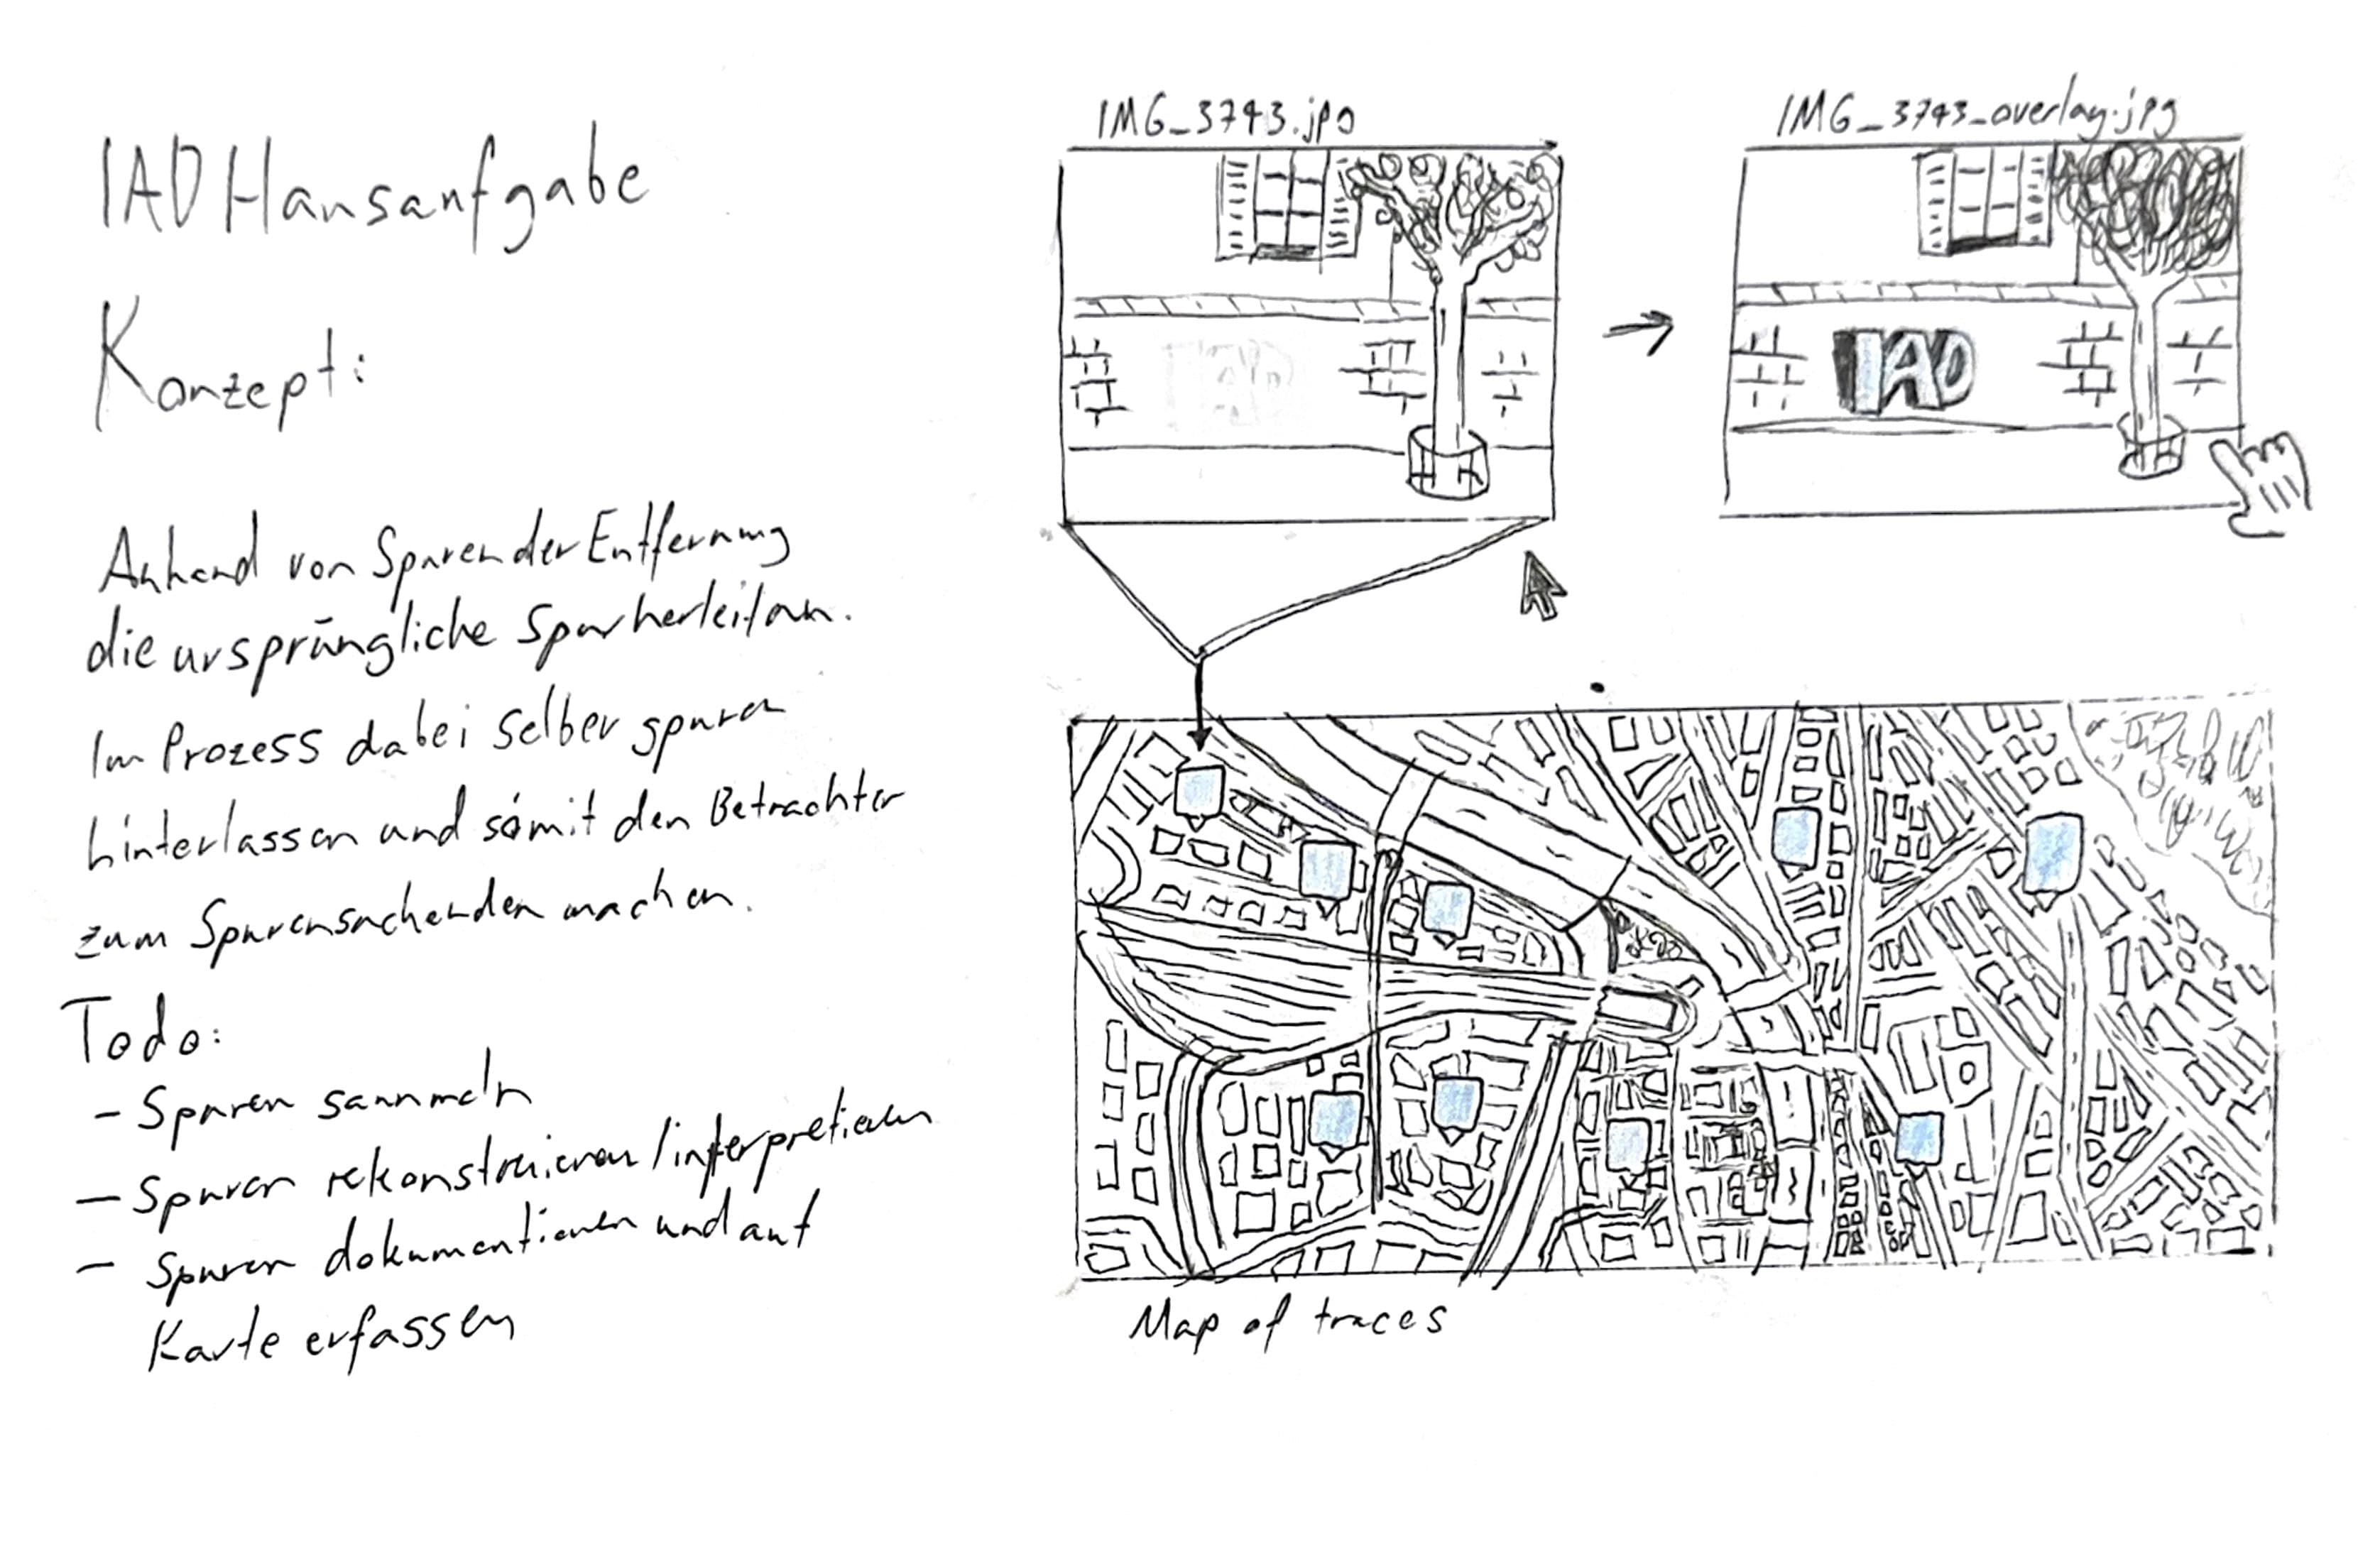 IAD Hausaufgabe
Konzept:
Anhand von Spuren der Entfernung
die ursprüngliche Spur herleiten.
Im Prozess dabei selber spuren
hinterlassen und somit den Betrachter
zum Spurensuchenden machen.
Todo:
- Spuren sammeln
- Spuren rekonstruieren / interpretieren
- Spuren dokumentieren und auf
Karte erfassen
IMG_3743.jpg
IAD
IMG_3743_overlay.jpg
IAD
Map of traces